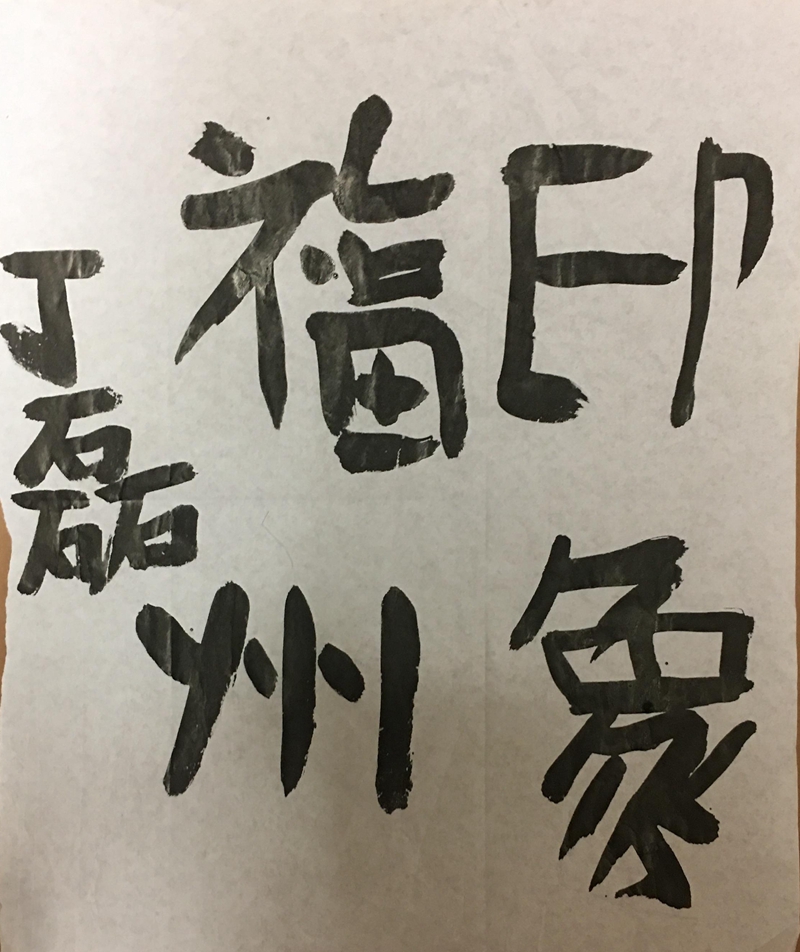 印象
福州
丁磊